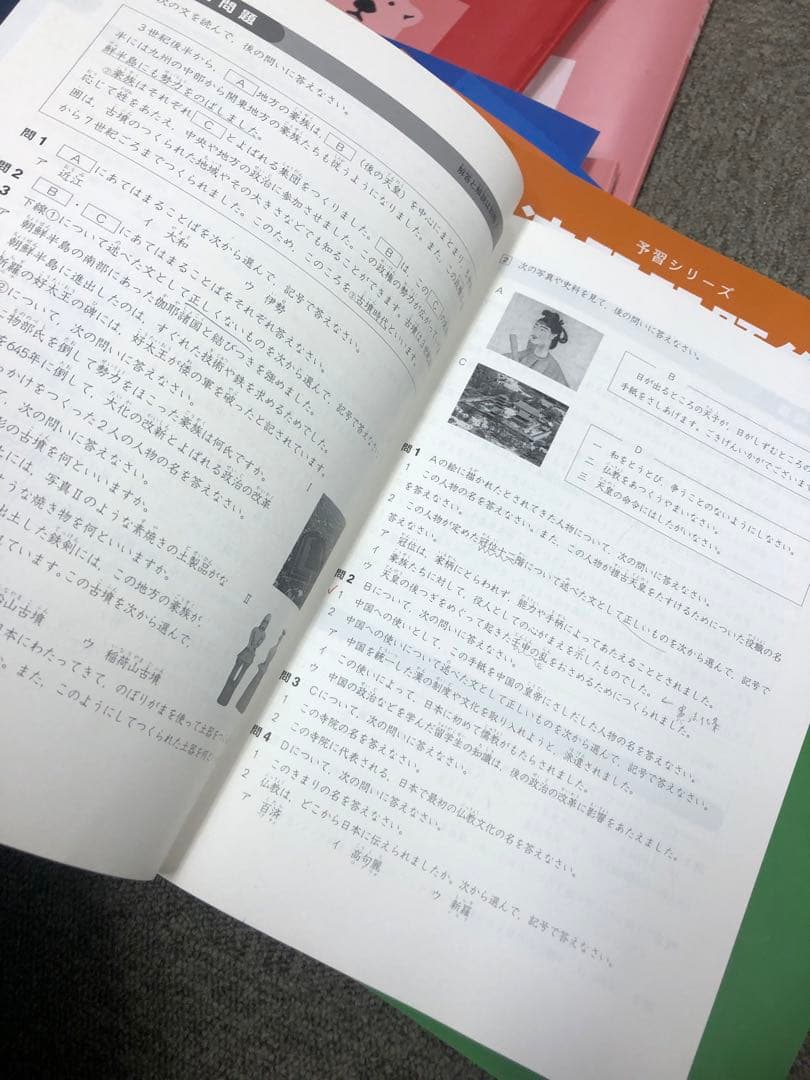 問題
次の文を読んで，後の問いに答えなさい。
3世紀後半から， A 地方の豪族は， B （後の天皇）を中心にまとまり，
半には九州の中部から関東地方の豪族たちも従うようになりました。また，
鮮半島にも勢力をのばしました。
②豪族はそれぞれ C とよばれる集団をつくりました。 B は，この C
応じて姓をあたえ，中央や地方の政治に参加させました。この政権の勢力が
囲は，古墳のつくられた地域やその大きさなどでも知ることができます。古墳は3世紀
から7世紀ころまでつくられました。このため，このころを③古墳時代といいます。
問1 A にあてはまることばを次から選んで，記号で答えなさい。
ア 近江 イ 大和 ウ 伊勢
問2 B ・ C にあてはまることばをそれぞれ答えなさい。
3 下線①について述べた文として正しくないものを次から選んで，記号で答えなさい。
ア 朝鮮半島の南部にあった伽耶諸国と結びつきを強めました。
朝鮮半島に進出したのは，すぐれた技術や鉄を求めるためでした。
新羅の好太王の碑には，好太王が倭の軍を破ったと記されています。
②について，次の問いに答えなさい。
物部氏を倒して勢力をほこった豪族は何氏ですか。
645年に倒して，大化の改新とよばれる政治の改革
っかけをつくった2人の人物の名を答えなさい。
て，次の問いに答えなさい。
形の古墳を何といいますか。
には，写真Ⅱのような素焼きの土製品がな
ような焼き物を何といいますか。
出土した鉄剣には，この地方の豪族が，
れています。この古墳を次から選んで，
山古墳 ウ 稲荷山古墳
日本にわたってきて，のぼりがまを使って土器をつ
。また，このようにしてつくられた土器を何と
Ⅰ
Ⅱ
予習シリーズ
2 次の写真や史料を見て，後の問いに答えなさい。
A
B
日が出るところの天子が，日がしずむところの
手紙をさしあげます。ごきげんいかがでございま
C
D
一 和をとうとび，争うことのないようにしなさい。
二 仏教をあつくうやまいなさい。
三 天皇の命令にはしたがいなさい。
問1 Aの絵に描かれたとされてきた人物について，次の問いに答えなさい。
1 この人物の名を答えなさい。また，この人物が推古天皇をたすけるためについた役職の名
を答えなさい。
2 この人物が定めた冠位十二階について述べた文として正しいものを次から選んで，記号で
答えなさい。
ア 冠位は，家柄にとらわれず，能力や手柄によってあたえることとされました。
イ 豪族たちに対して，役人としての心がまえを示したものでした。
ウ 天皇の後つぎをめぐって起きた壬申の乱をおさめるためにつくられました。
問2 Bについて，次の問いに答えなさい。
1 中国への使いとして，この手紙を中国の皇帝にさしだした人物の名を答えなさい。
2 中国への使いについて述べた文として正しいものを次から選んで，記号で答えなさい。
ア 中国を統一した漢の制度や文化を取り入れようと，派遣されました。
イ この使いによって，日本に初めて儒教がもたらされました。
ウ 中国の政治などを学んだ留学生の知識は，後の政治の改革に影響をあたえました。
問3 Cについて，次の問いに答えなさい。
1 この寺院の名を答えなさい。
2 この寺院に代表される，日本で最初の仏教文化の名を答えなさい。
問4 Dについて，次の問いに答えなさい。
1 このきまりの名を答えなさい。
2 仏教は，どこから日本に伝えられましたか。次から選んで，記号で答えなさい。
ア 百済 イ 高句麗 ウ 新羅